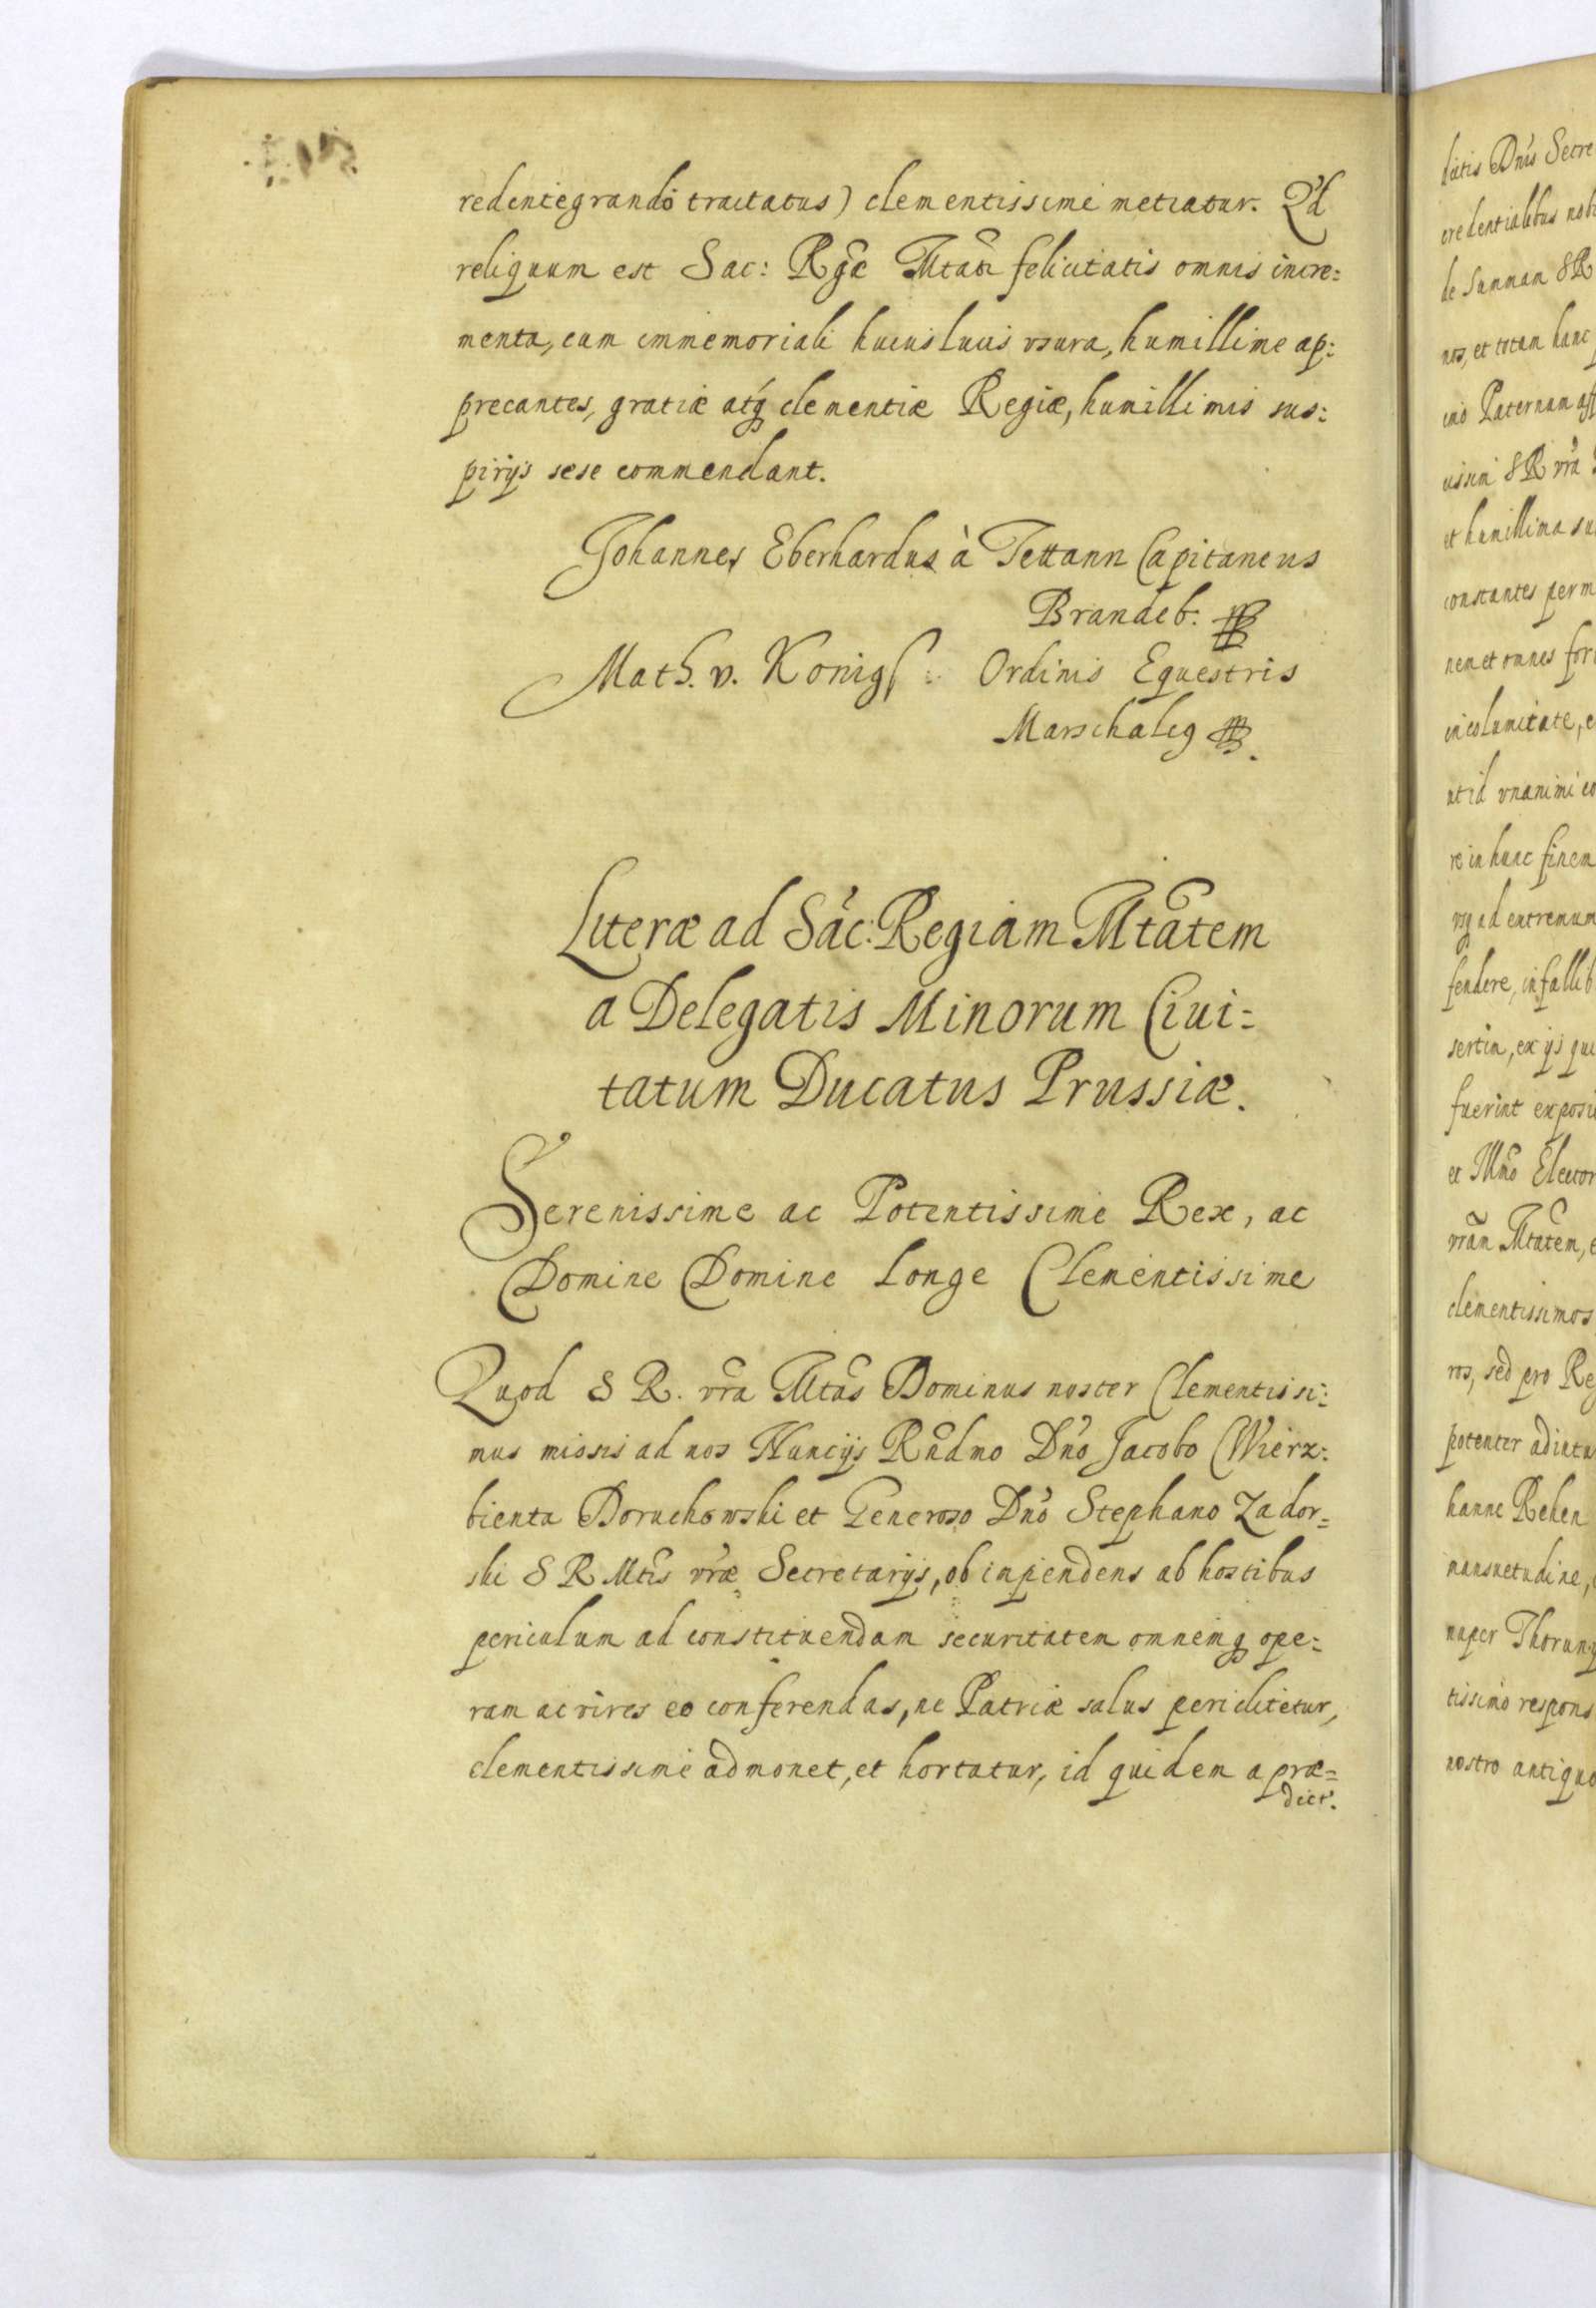 redintegrando tractatus) clementissime metiatur. Qd
reliquum est Sac: Rgæ Mtati felicitatis omnis incre:
menta, cum immemoriali huius lucis vsura, humillime ap:
precantes, gratiæ atq clementiæ Regiæ, humillimis sus:
pirijs sese commendant.
Johannes Eberhardus à Tettann Capitaneus
Brandeb:
Math. v. Konigs Ordinis Equestris
Marschaleg
Literæ ad Sac: Regiam Mtatem
a Delegatis Minorum Ciui:
tatum Ducatus Prussiæ.
Serenissime ac Potentissime Rex, ac
Domine Domine longe Clementissime
Quod S R. vra Mtas Dominus noster Clementissi:
mus missis ad nos Nuncijs Rndmo Dno Jacobo Wierz:
bienta Doruchowski et Generoso Dno Stephano Zador=
ski S R Mtis vræ Secretarijs, ob inpendens ab hostibus
periculum ad constituendam securitatem omnemq ope:
ram ac vires eo conferendas, ne Patriæ salus periclitetur,
clementissime admonet, et hortatur, id quidem a præ=
dict.
latis Dnis Secre
credentialibus nob
de Summam S R
nos, et totam hanc
imo Paternam aff
uissimi S R vra
et humillima su
constantes perm
nem et omnes for
incolumitate, e
ut id vnanimi co
re in hunc finem
vsq ad extremum
fendere, infallib
sertim, ex ijs qui
fuerint exposi
et Illmo Elector
vram Mtatem, e
clementissimos
ros, sed pro Reg
potenter adiutu
hanne Rehen
mansuetudine,
nuper Thorunij
tissimo respons
nostro antiquo